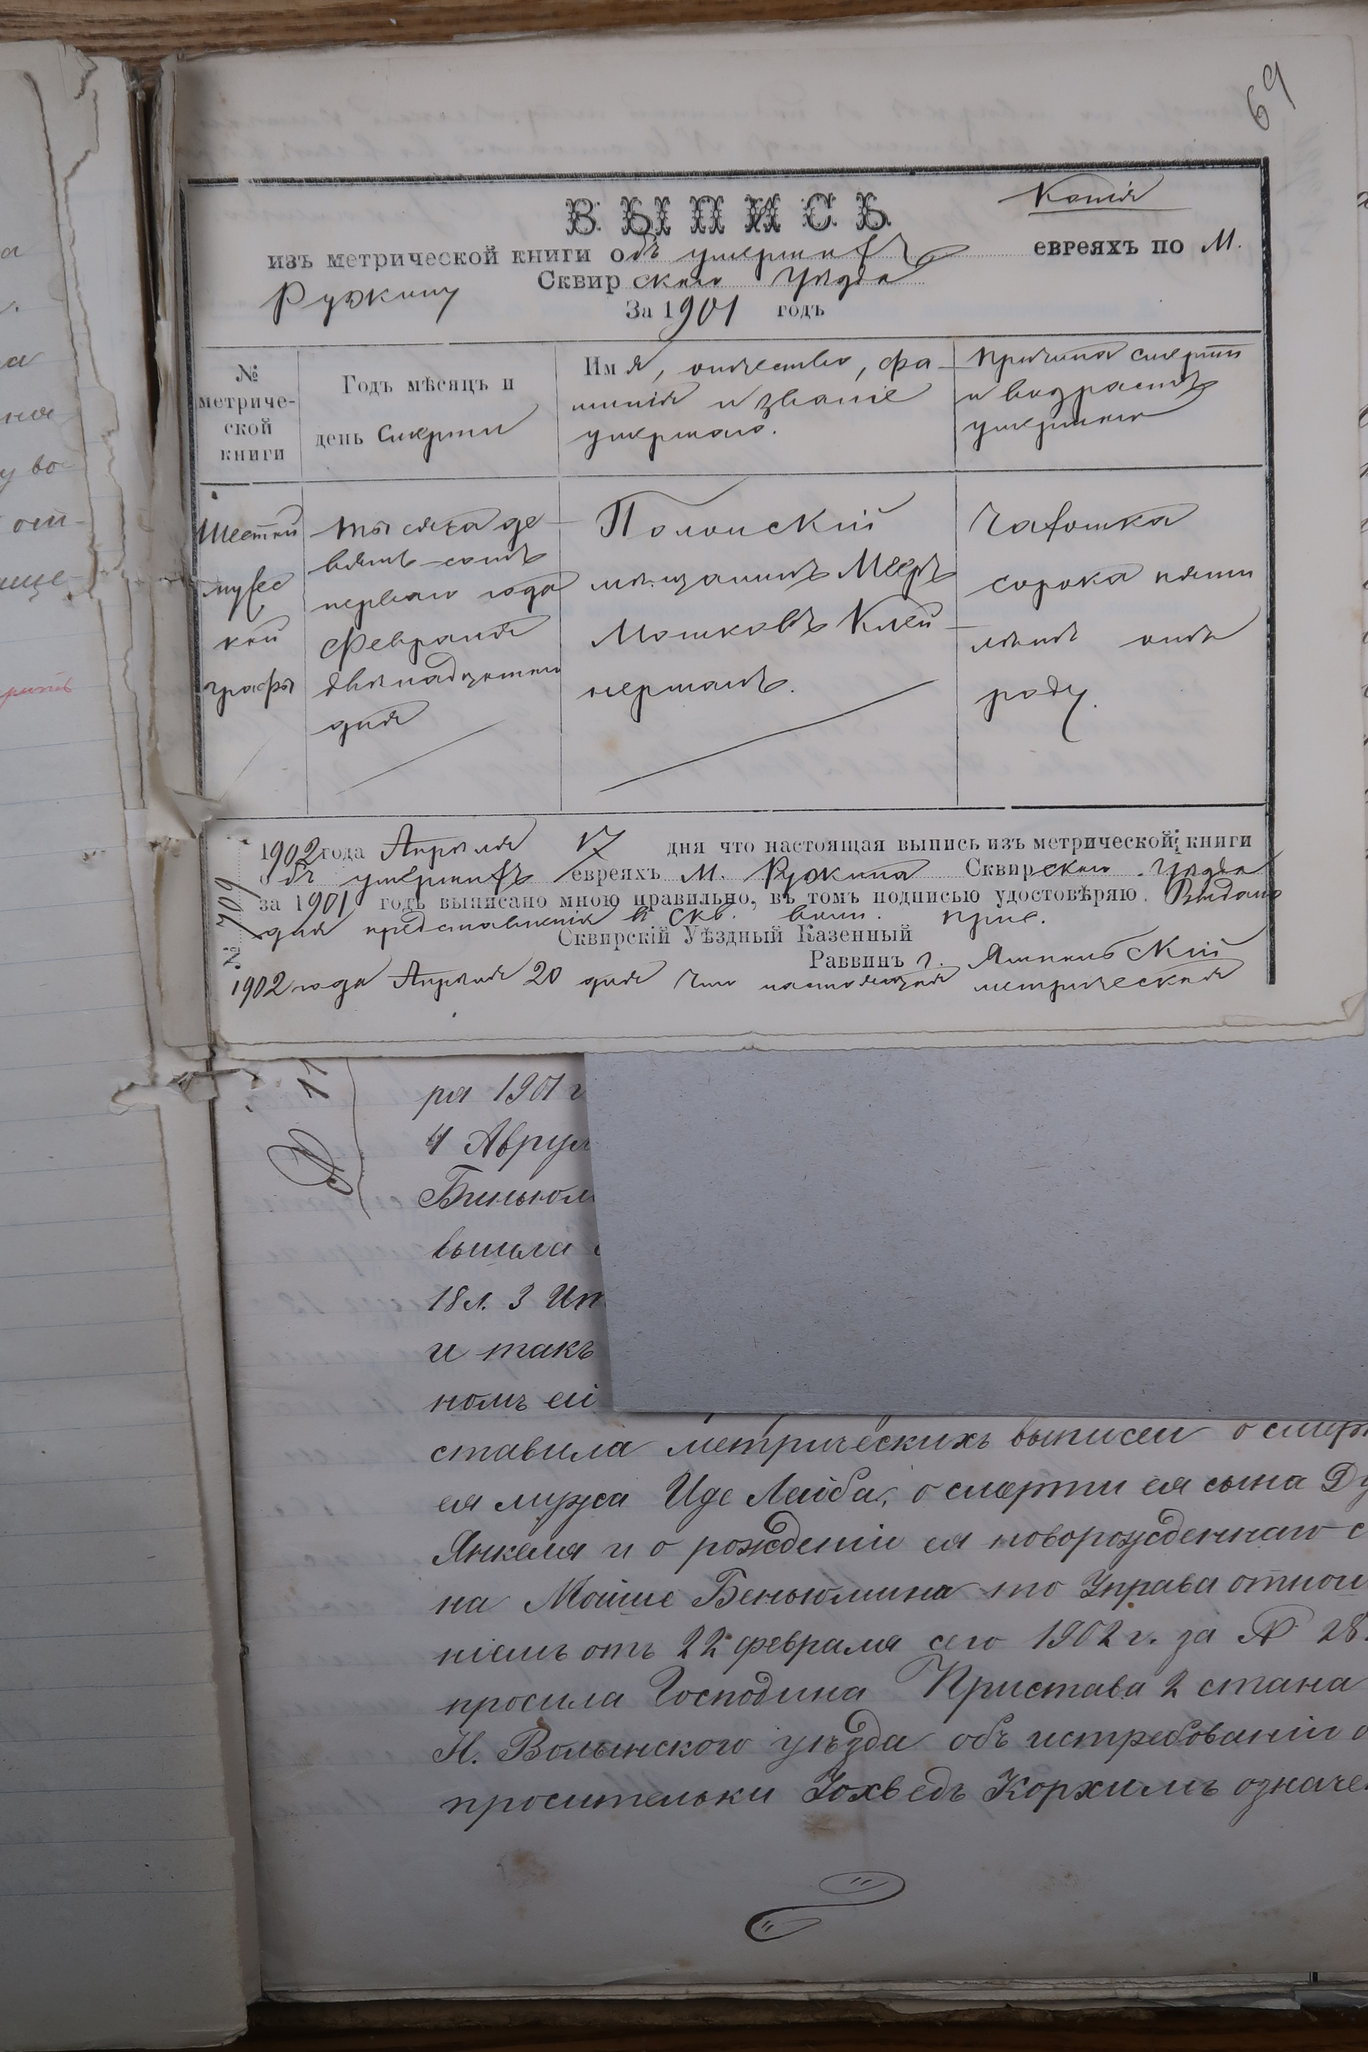 69
Копія
ВЫПИСЬ
изъ метрической книги объ умершихъ евреяхъ по М.
Ружину Сквирскаго Уѣзда
За 1901 годъ
№ метриче-
ской
книги
Годъ мѣсяцъ и
день смерти
Имя, отчество, фа-
милія и званіе
умершаго.
Причина смерти
и возрастъ
умершаго
Шестой
мужес
кой
графы
тысяча де-
вятьсотъ
перваго года
Февраля
двенадцатаго
дня
Полонскій
мѣщанинъ Мееръ
Мошковъ Клей-
нерманъ.
Чахотка
сорока пяти
лѣтъ отъ
роду.
№ 709
1902 года Апрѣля 17 дня что настоящая выпись изъ метрической книги
объ умершихъ евреяхъ М. Ружина Сквирскаго Уѣзда
за 1901 годъ выписано мною правильно, въ томъ подписью удостовѣряю. Выдано
для представленія в Скв. воин. прис.
Сквирскій Уѣздный Казенный
Раввинъ г. Ямпольскій
1902 года Апрѣля 20 дня что настоящая метрическая
ря 1901 г
4 Аврул
Биньюм
вышла
18 л. 3 Ит
и такъ
номъ ей
ставила метрическихъ выписей о смерт
ея мужа Иде Лейба, о смерти ея сына Ду
Янкеля и о рожденіи ея новорожденнаго с
на Мойше Беньюмина то Управа отнош
ніемъ отъ 22 февраля сего 1902 г. за № 28
просила Господина Пристава 2 стана
Н. Волынского уѣзда объ истребованіи о
просительки Іохведъ Корхимъ означе